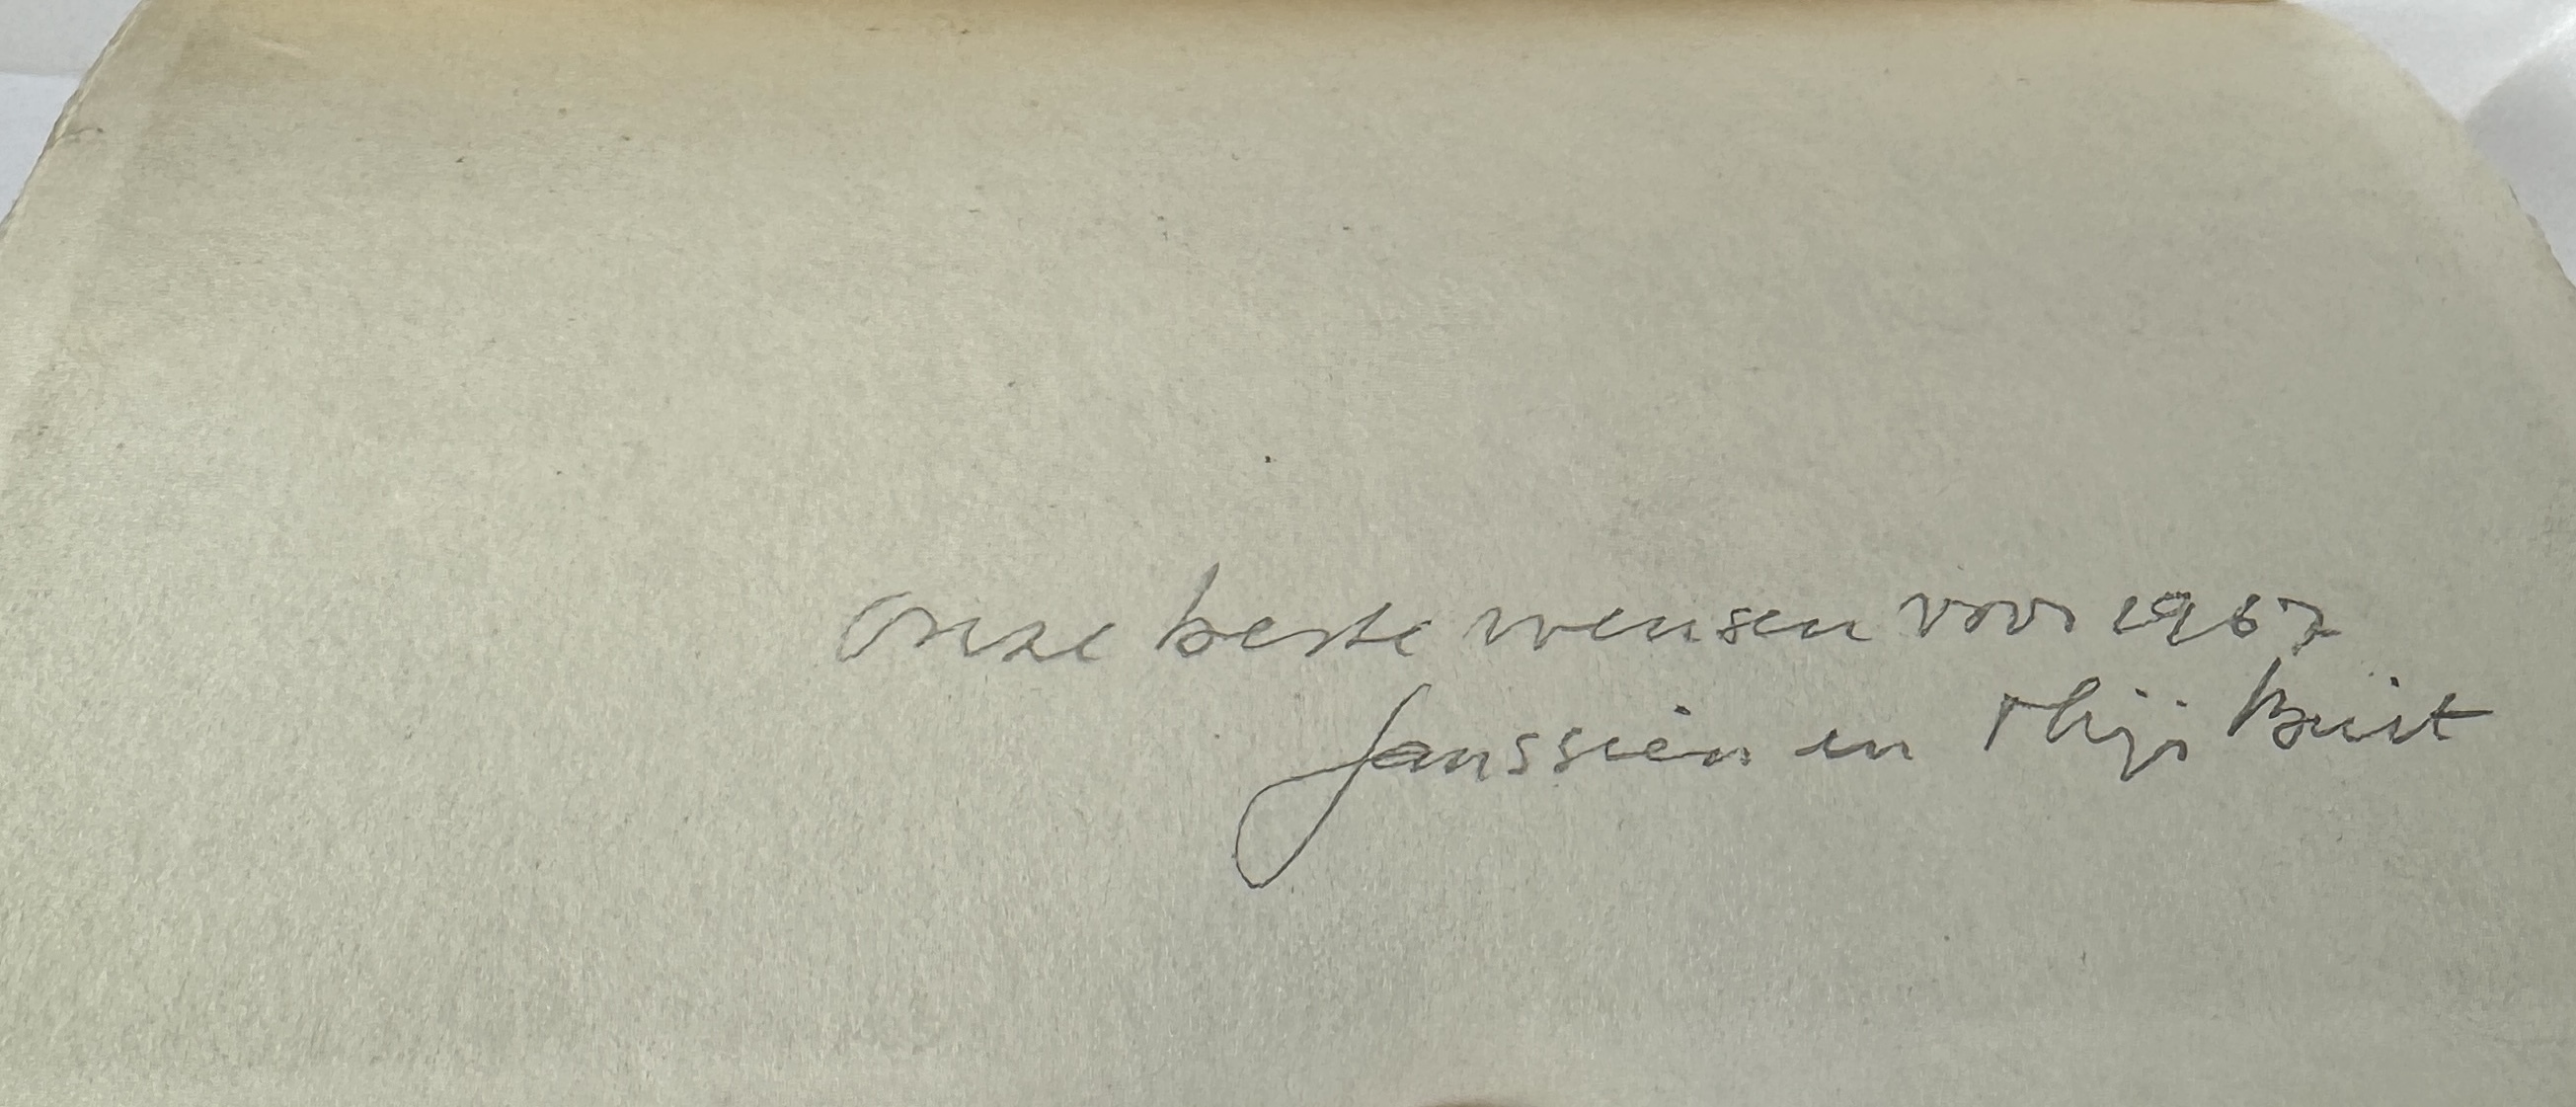 Onze beste wensen voor 1967
Janssien en Thijs Buit